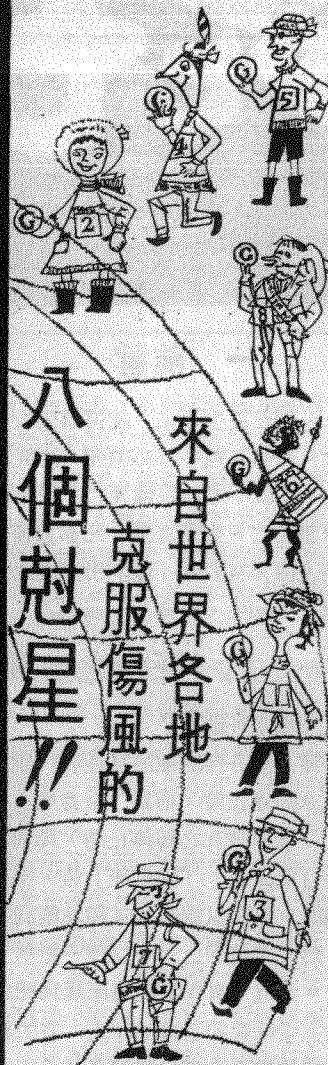 來自世界各地
克服傷風的
八個尅星!!
G 2
G 4
G 5
G
G 6
G
G 3
7 G